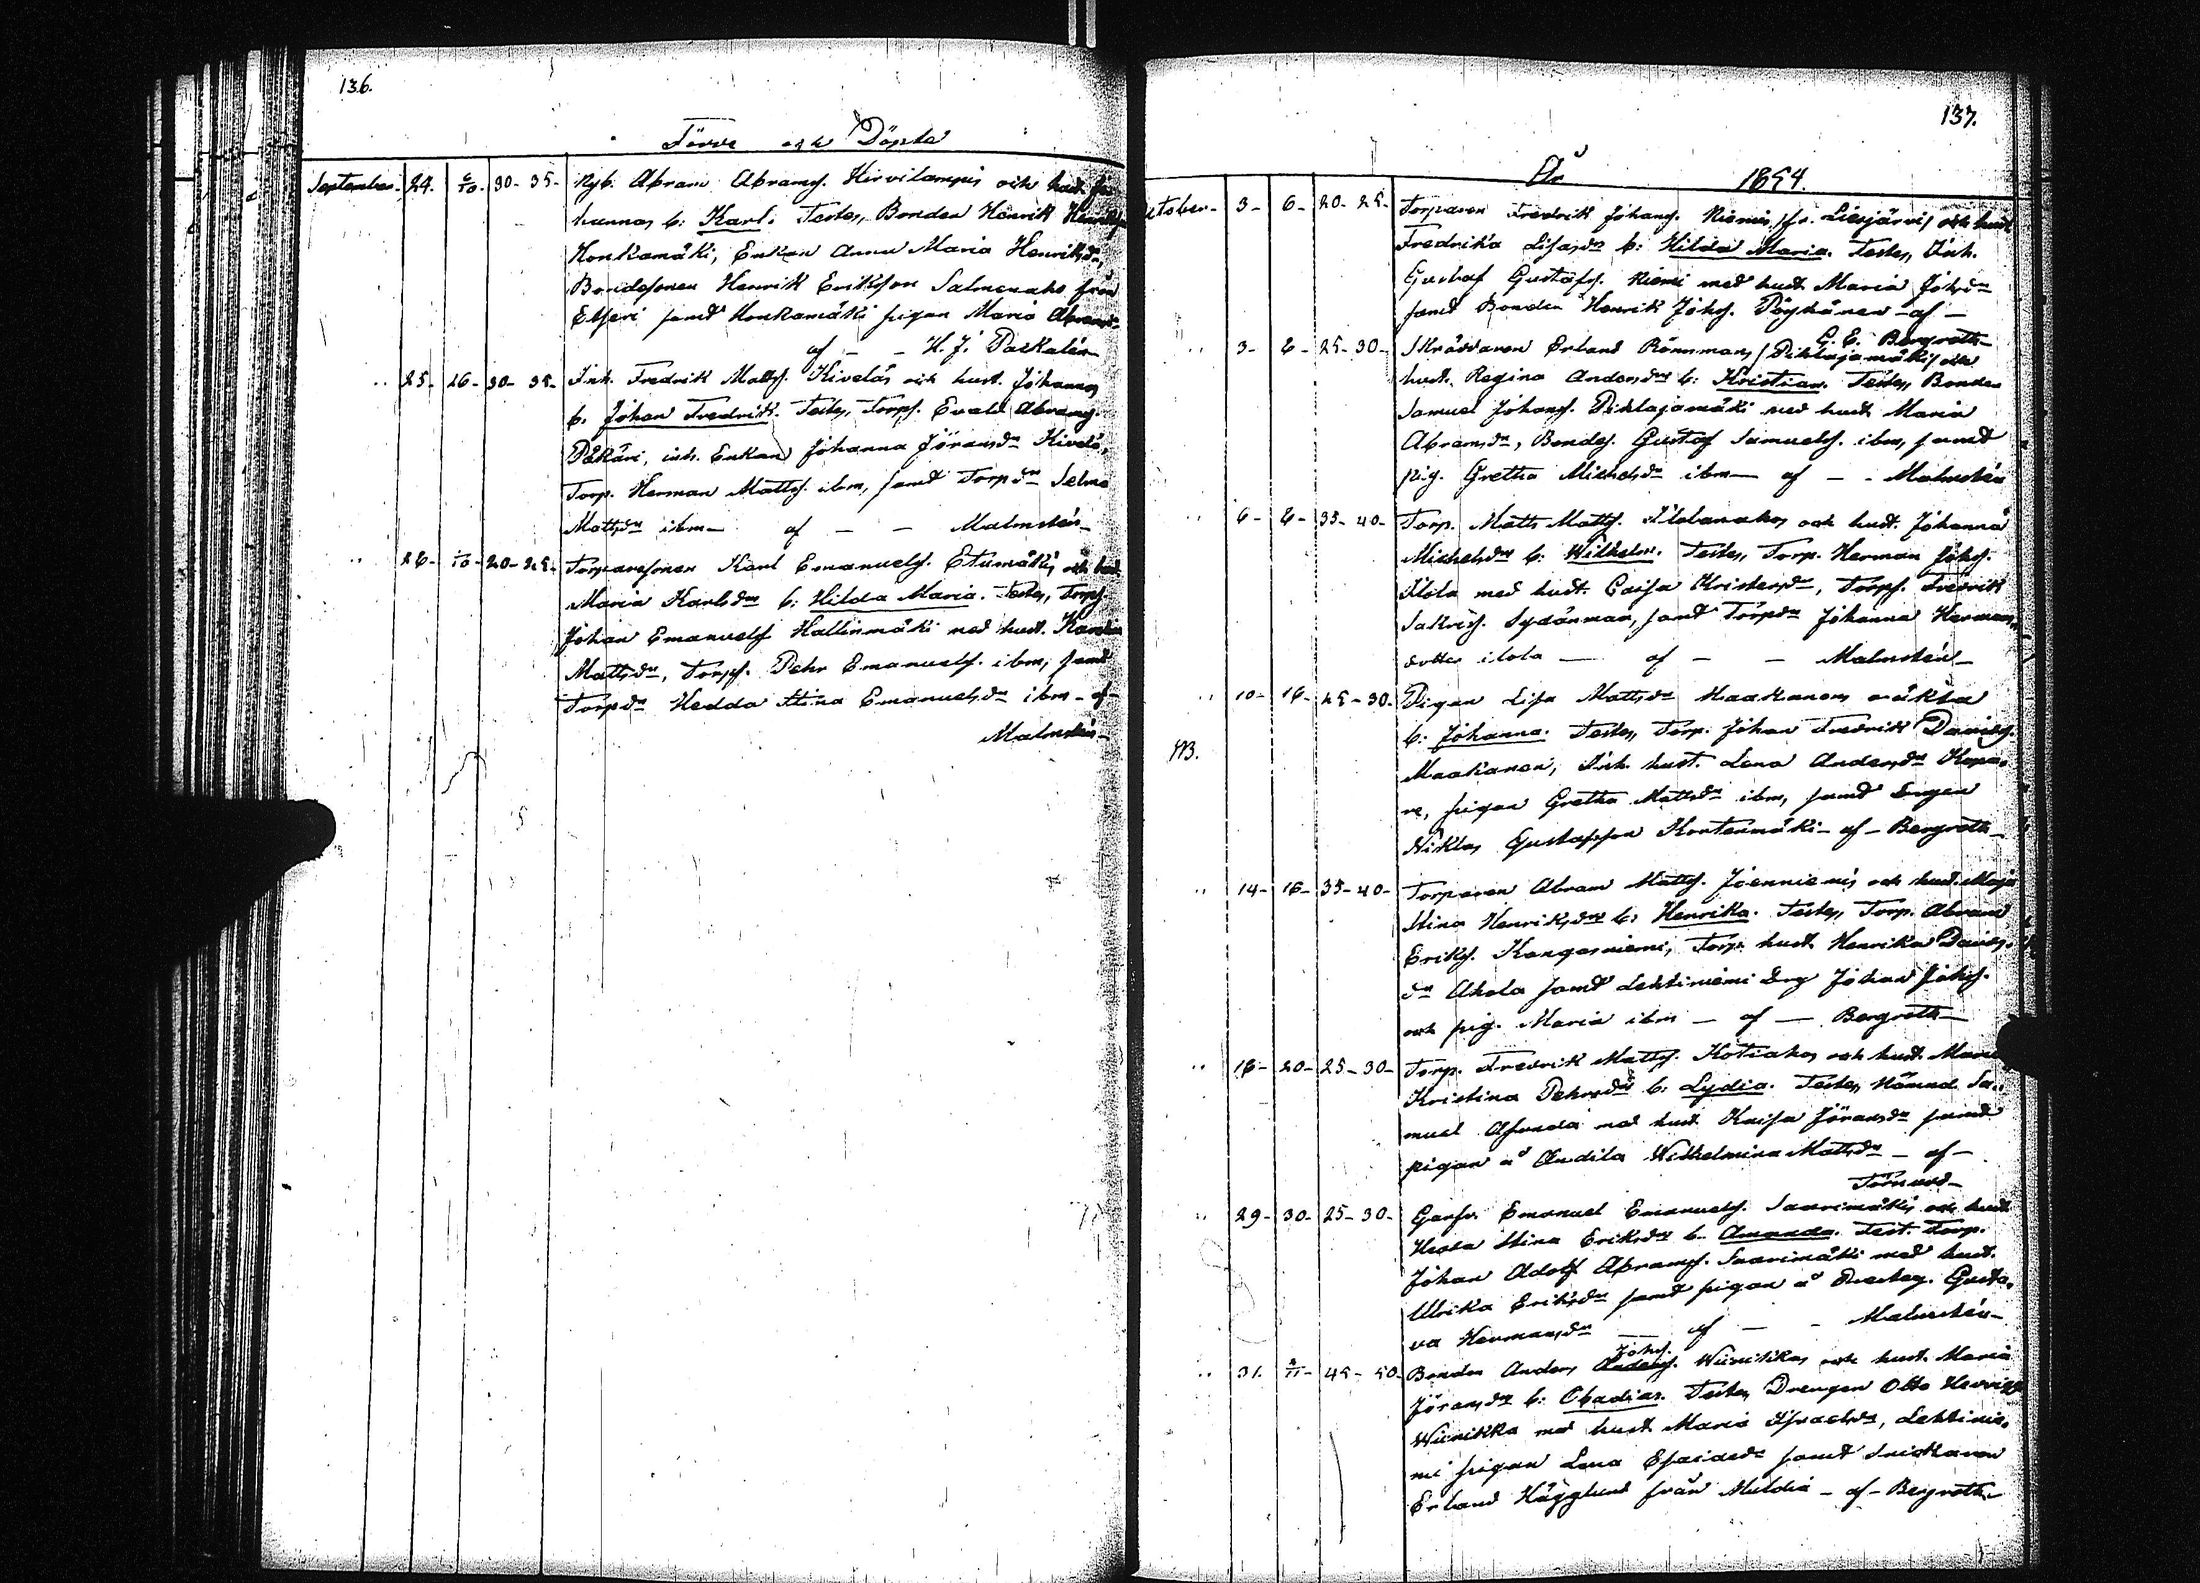 136.
Födde och Döpte
September. 24. 6/10. 30-35- Nyb. Abram Abramss. Hirvilampis och hust. Jo
hannas b: Karl. Testes, Bonden Henrik Henrikss
Honkamäki, Enkan Anna Maria Henriksdr,
Bondesonen Henrik Eriksson Salmenaho från
Etseri samt Honkamäki pigan Maria Abramsdr
af - - H. J. Paskalén
" 25- 26- 30- 35- Inh. Fredrik Matts. Kiveläs och hust. Johannas
b. Johan Fredrik. Testes, Torps. Evald Abrams.
Påkäri, inh. Enkan Johanna Jöransdr Kivelä,
Torp. Herman Matts. ibm, samt Torpdr Selma
Mattsdr ibm- af - - Malmstén-
" 26- 1/10- 20- 25- Torparesonen Karl Emanuels. Etumäkis och hust
Maria Karlsdrs b: Hilda Maria. Testes, Torps.
Johan Emanuels Hallinmäki med hust. Karolina
Mattsdr, Torps. Pehr Emanuels. ibm, samt
Torpdr Hedda Stina Emanuelsdr ibm - af -
Malmstén-
137.
År 1894.
October- 3- 6- 20- 25- Torparen Fredrik Johans. Niemis, fr. Liesjärvi/ och hust
Fredrika Lisasdrs b: Hilda Maria. Testes, Inh.
Gustaf Gustafs. Niemi med hust. Maria Johsdr
samt Bonden Henrik Johs. Pöyhönen - af -
G. E. Bergroth-
" 3- 6- 25- 30- Skräddaren Erland Rönnmans /Pihlajamäki/ och
hust. Regina Andersdrs b: Kristian. Testes, Bonden
Samuel Johans. Pihlajamäki med hust. Maria
Abramsdr, Bondes. Gustaf Samuels. ibm, samt
pig. Gretha Michelsdr ibm- af - - Malmstén
" 6- 6- 35- 40- Torp. Matts Matts. Ilolanahos och hust. Johanna
Michelsdrs b: Wilhelm. Testes, Torp. Herman Johs.
Ilola med hust. Caisa Kristersdr, Torps. Fredrik
Sakris. Sydänmaa, samt Torpdr Johanna Hermans
dotter Ilola - af - - Malmstén-
" 10- 16- 25- 30- Pigan Lisa Mattsdr Maakanens oäkta
b: Johanna. Testes, Torp. Johan Fredrik Davids.
NB. Maakanen, Inh. hust. Lena Andersdr Kupa-
re, pigan Gretha Mattsdr ibm, samt drengen
Niklas Gustafsson Kontenmäki- af - Bergroth-
" 14- 16- 35- 40- Torparen Abram Matts. Joenniemis och hust. Maja
Stina Henriksdrs b: Henrika. Testes, Torp. Abram
Eriks. Kangasniemi, Torp. hust. Henrika Davids-
dr Ahola samt Lehtiniemi drg Johan Johs.
och pig. Maria ibm - af - Bergroth-
" 16- 20- 25- 30- Torp. Fredrik Matts. Kotiahos och hust. Maria
Kristina Pehrsdrs b: Lydia. Testes, Nämnd. Sa-
muel Asunda med hust. Kaisa Jöransdr samt
pigan å Andila Wilhelmina Mattsdr - af -
Törnudd-
" 29- 30- 25- 30- Gerhr. Emanuel Emanuels. Saarimäkis och hust
Hedda Stina Eriksdrs b- Amanda. Test. Torp.
Johan Adolf Abrams. Saarimäki med hust.
Ulrika Eriksdr samt pigan å Presteg. Gusta-
va Hermansdr - af - - Malmstén-
" 31. 2/11- 45- 50- Bonden Anders Anderss. Johs. Wiinikkas och hust. Maria
Jöransdrs b: Obadias. Testes, Drengen Otto Henriks
Wiinikka med hust. Maria Israelsdr, Lehtinie-
mi pigan Lena Esaiasdr samt Snickaren
Erland Hägglund från Multia - af - Bergroth-